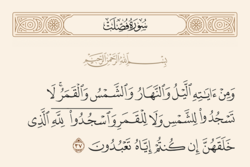 سُورَةُ فُصِّلَتْ
بِسْمِ ٱللَّهِ ٱلرَّحْمَٰنِ ٱلرَّحِيمِ
وَمِنْ ءَايَٰتِهِ ٱلَّيْلُ وَٱلنَّهَارُ وَٱلشَّمْسُ وَٱلْقَمَرُ ۚ لَا
تَسْجُدُوا۟ لِلشَّمْسِ وَلَا لِلْقَمَرِ وَٱسْجُدُوا۟ لِلَّهِ ٱلَّذِى
خَلَقَهُنَّ إِن كُنتُمْ إِيَّاهُ تَعْبُدُونَ ٣٧